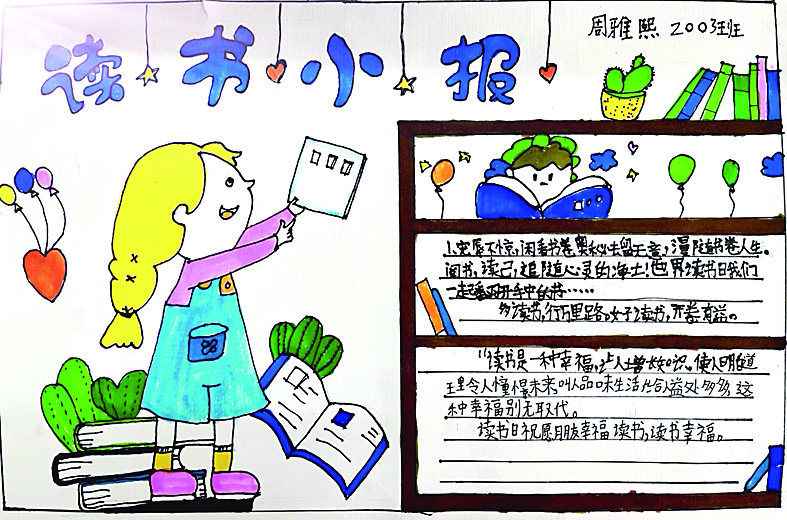 读书小报
周雅熙 2003班
1、宠辱不惊,闲看书卷奥秘;去留无意,漫随书卷人生。
阅书,读己,追随心灵的净土!世界读书日我们
一起
多读书,行万里路。好子读书,开卷有益。
读书是一种幸福,让人增长知识。使人明白道
理、令人憧憬未来、叫人品味生活。益处多多,这
种幸福别无取代。
读书日祝愿朋友幸福读书,读书幸福。